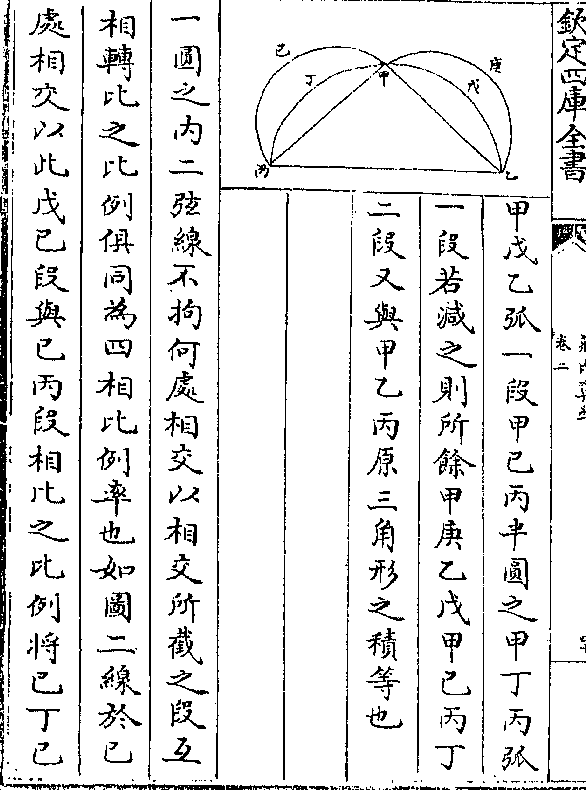 欽定四庫全書
卷二
庚
戊
乙
甲
已
丁
丙
甲戊乙弧一段甲已丙半圓之甲丁丙弧
一段若減之則所餘甲庚乙戊甲已丙丁
二段又與甲乙丙原三角形之積等也
一圓之内二弦線不拘何處相交以相交所截之段互
相轉比之比例俱同為四相比例率也如圖二線於已
處相交以此戊已段與已丙段相比之比例將已丁已